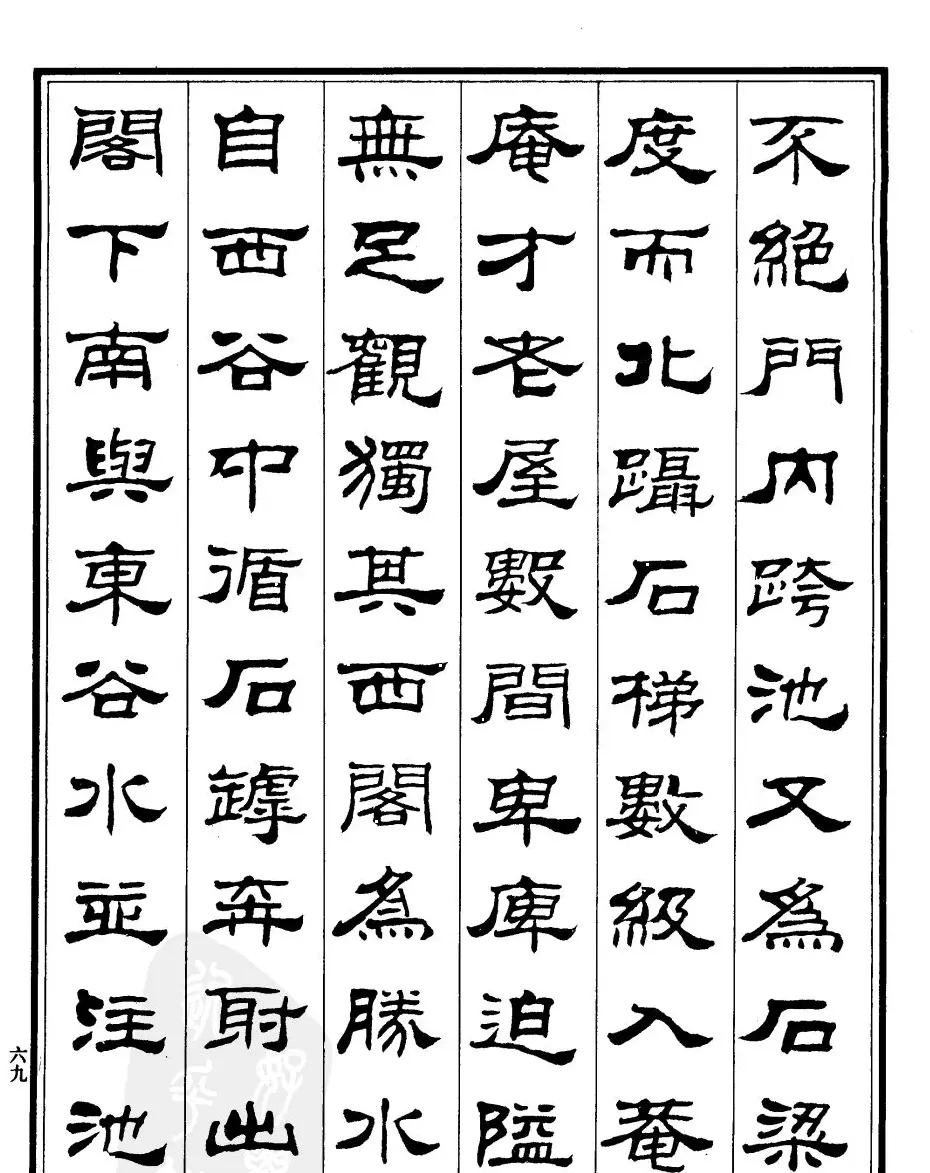 不絕門內跨池又為石梁
度而北躡石梯數級入菴
庵才老屋數間卑庳迫隘
無足觀獨其西閣為勝水
自西谷中循石罅奔射出
閣下南與東谷水並注池
六九